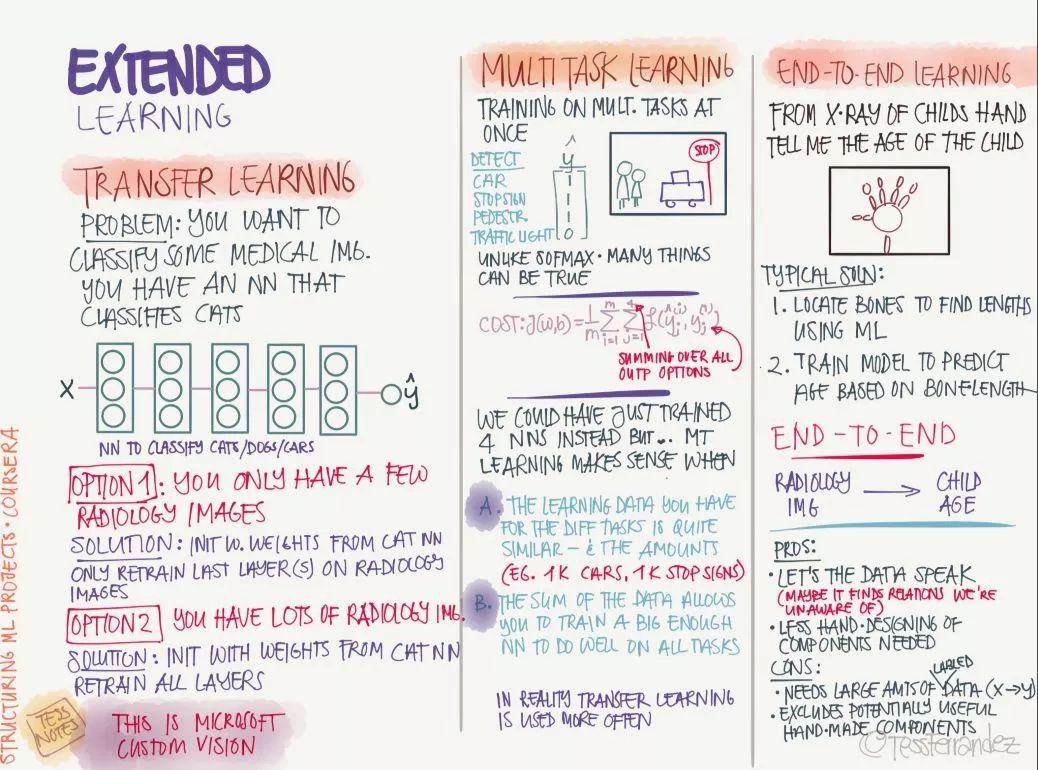 EXTENDED
LEARNING
TRANSFER LEARNING
PROBLEM: YOU WANT TO
CLASSIFY SOME MEDICAL IMG.
YOU HAVE AN NN THAT
CLASSIFIES CATS
X ŷ
NN TO CLASSIFY CATS/DOGS/CARS
OPTION 1: YOU ONLY HAVE A FEW
RADIOLOGY IMAGES
SOLUTION: INIT W. WEIGHTS FROM CAT NN
ONLY RETRAIN LAST LAYER(S) ON RADIOLOGY
IMAGES
OPTION 2 YOU HAVE LOTS OF RADIOLOGY IMG.
SOLUTION: INIT WITH WEIGHTS FROM CAT NN
RETRAIN ALL LAYERS
TESS
NOTES
THIS IS MICROSOFT
CUSTOM VISION
STRUCTURING ML PROJECTS · COURSERA
MULTI TASK LEARNING
TRAINING ON MULT. TASKS AT
ONCE
ŷ
DETECT
CAR 1
STOPSIGN
PEDESTR.
TRAFFIC LIGHT 0
STOP
UNLIKE SOFMAX · MANY THINGS
CAN BE TRUE
COST: J(w,b) = 1/m Σ_{i=1}^{m} Σ_{j=1}^{4} ℒ(ŷ_j^{(i)}, y_j^{(i)})
SUMMING OVER ALL
OUTP OPTIONS
WE COULD HAVE JUST TRAINED
4 NNS INSTEAD BUT... MT
LEARNING MAKES SENSE WHEN
A. THE LEARNING DATA YOU HAVE
FOR THE DIFF TASKS IS QUITE
SIMILAR - & THE AMOUNTS
(EG. 1K CARS, 1K STOP SIGNS)
B. THE SUM OF THE DATA ALLOWS
YOU TO TRAIN A BIG ENOUGH
NN TO DO WELL ON ALL TASKS
IN REALITY TRANSFER LEARNING
IS USED MORE OFTEN
END-TO-END LEARNING
FROM X-RAY OF CHILDS HAND
TELL ME THE AGE OF THE CHILD
TYPICAL SOLN:
1. LOCATE BONES TO FIND LENGTHS
USING ML
2. TRAIN MODEL TO PREDICT
AGE BASED ON BONELENGTH
END-TO-END
RADIOLOGY → CHILD
IMG AGE
PROS:
· LET'S THE DATA SPEAK
(MAYBE IT FINDS RELATIONS WE'RE
UNAWARE OF)
· LESS HAND-DESIGNING OF
COMPONENTS NEEDED
CONS:
LABLED
· NEEDS LARGE AMTS OF DATA (X→Y)
· EXCLUDES POTENTIALLY USEFUL
HAND-MADE COMPONENTS
@TessFerrandez